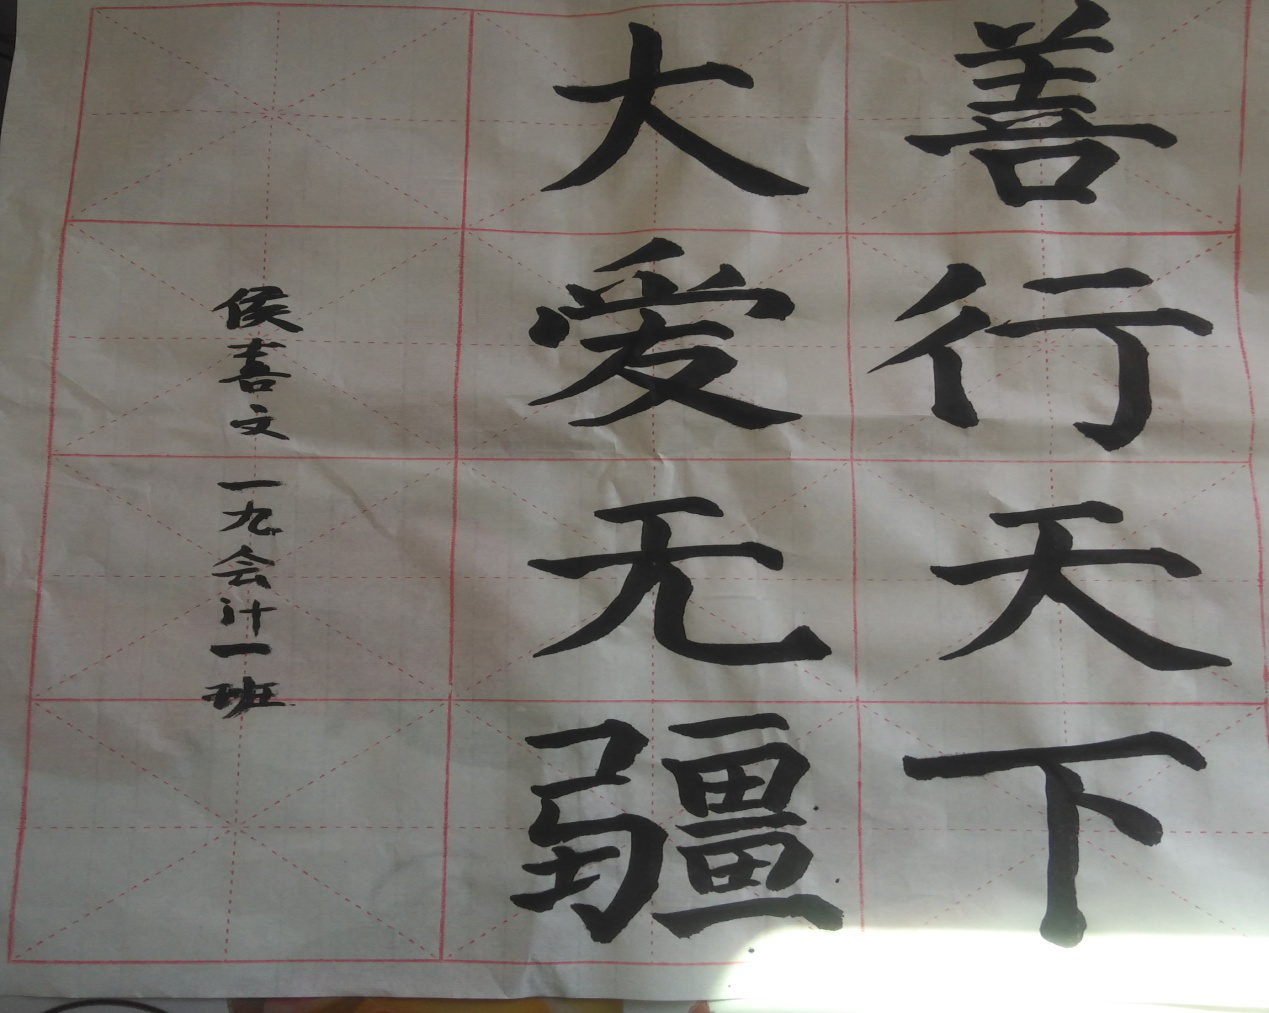 善行天下
大爱无疆
侯喜文 一九会计一班